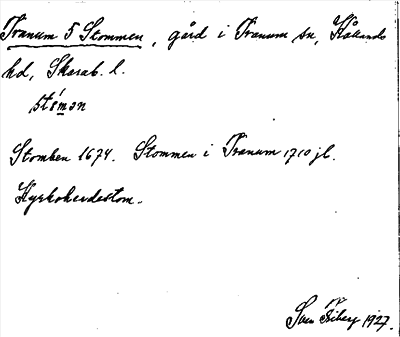 Tranum 5 Stommen, gård i Tranum sn, Kållands
hd, Skarab. l.
stómən
Stomben 1674. Stommen i Tranum 1710 jb.
Kyrkoherdestom.
Sven Friberg 1927.